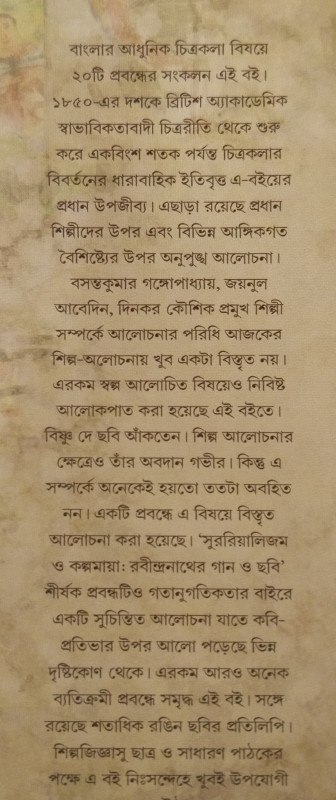 বাংলার আধুনিক চিত্রকলা বিষয়ে
২০টি প্রবন্ধের সংকলন এই বই।
১৮৫০-এর দশকে ব্রিটিশ অ্যাকাডেমিক
স্বাভাবিকতাবাদী চিত্ররীতি থেকে শুরু
করে একবিংশ শতক পর্যন্ত চিত্রকলার
বিবর্তনের ধারাবাহিক ইতিবৃত্ত এ-বইয়ের
প্রধান উপজীব্য। এছাড়া রয়েছে প্রধান
শিল্পীদের উপর এবং বিভিন্ন আঙ্গিকগত
বৈশিষ্ট্যের উপর অনুপুঙ্খ আলোচনা।
বসন্তকুমার গঙ্গোপাধ্যায়, জয়নুল
আবেদিন, দিনকর কৌশিক প্রমুখ শিল্পী
সম্পর্কে আলোচনার পরিধি আজকের
শিল্প-অলোচনায় খুব একটা বিস্তৃত নয়।
এরকম স্বল্প আলোচিত বিষয়েও নিবিষ্ট
আলোকপাত করা হয়েছে এই বইতে।
বিষ্ণু দে ছবি আঁকতেন। শিল্প আলোচনার
ক্ষেত্রেও তাঁর অবদান গভীর। কিন্তু এ
সম্পর্কে অনেকেই হয়তো ততটা অবহিত
নন। একটি প্রবন্ধে এ বিষয়ে বিস্তৃত
আলোচনা করা হয়েছে। ‘সুররিয়ালিজম
ও কল্পমায়া: রবীন্দ্রনাথের গান ও ছবি’
শীর্ষক প্রবন্ধটিও গতানুগতিকতার বাইরে
একটি সুচিন্তিত আলোচনা যাতে কবি-
প্রতিভার উপর আলো পড়েছে ভিন্ন
দৃষ্টিকোণ থেকে। এরকম আরও অনেক
ব্যতিক্রমী প্রবন্ধে সমৃদ্ধ এই বই। সঙ্গে
রয়েছে শতাধিক রঙিন ছবির প্রতিলিপি।
শিল্পজিজ্ঞাসু ছাত্র ও সাধারণ পাঠকের
পক্ষে এ বই নিঃসন্দেহে খুবই উপযোগী